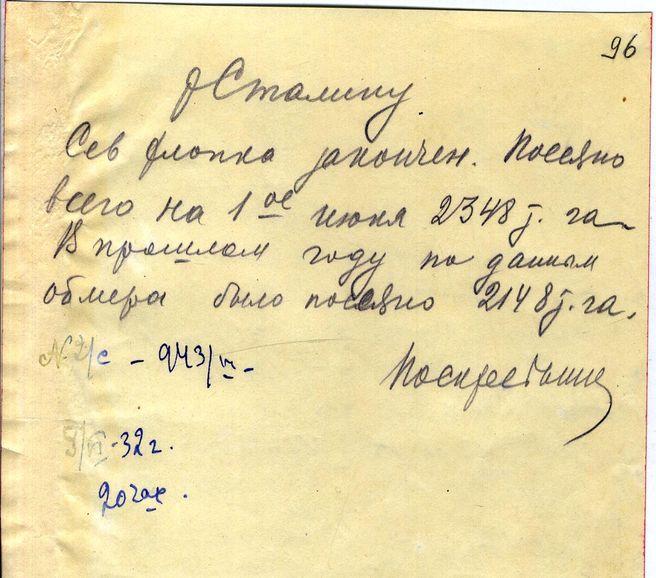 96
т Сталину
Сев хлопка закончен. Посеяно
всего на 1ое июня 2348 т. га.
В прошлом году по данным
обмера было посеяно 2148 т. га.
Поскребышев
№ 2/с – 943/VI –
5/VI-32 г.
20 час.